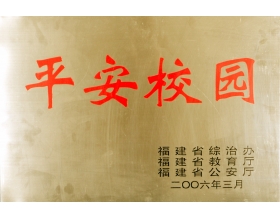 平安校园
福建省综治办
福建省教育厅
福建省公安厅
二〇〇六年三月